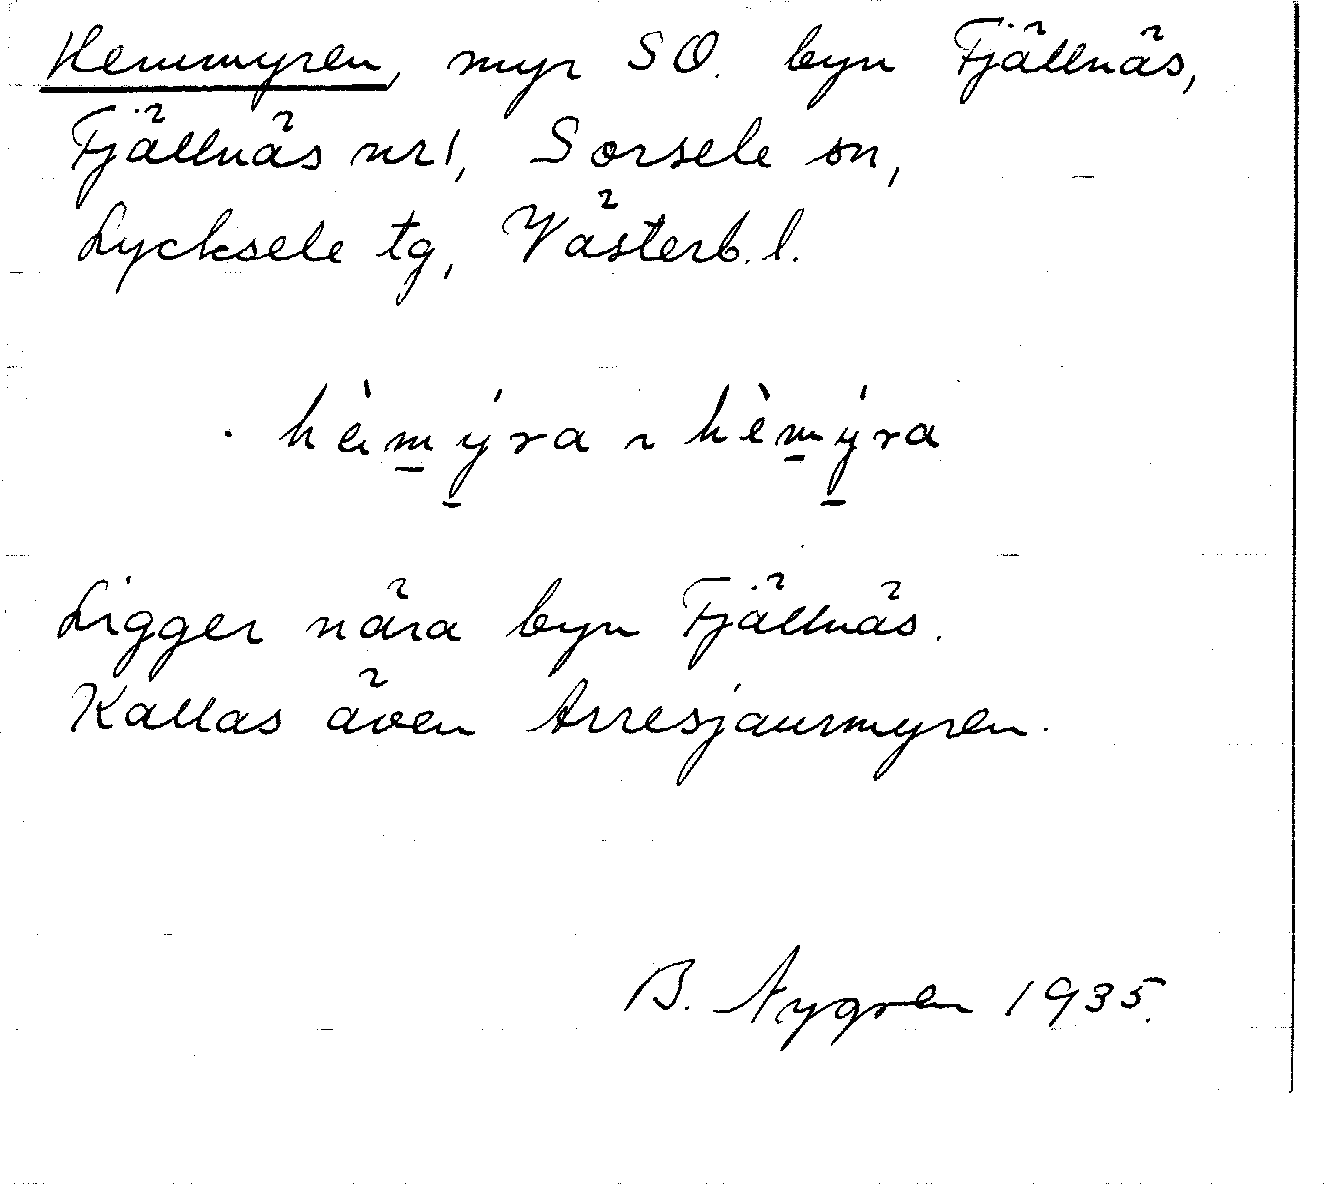 Hemmyren, myr SO. byn Fjällnäs,
Fjällnäs nr 1, Sorsele sn,
Lycksele tg, Västerb. l.
hèm̱ýra ~ hèm̱ýra
Ligger nära byn Fjällnäs.
Kallas även Arresjaurmyren.
B. Nygren 1935.